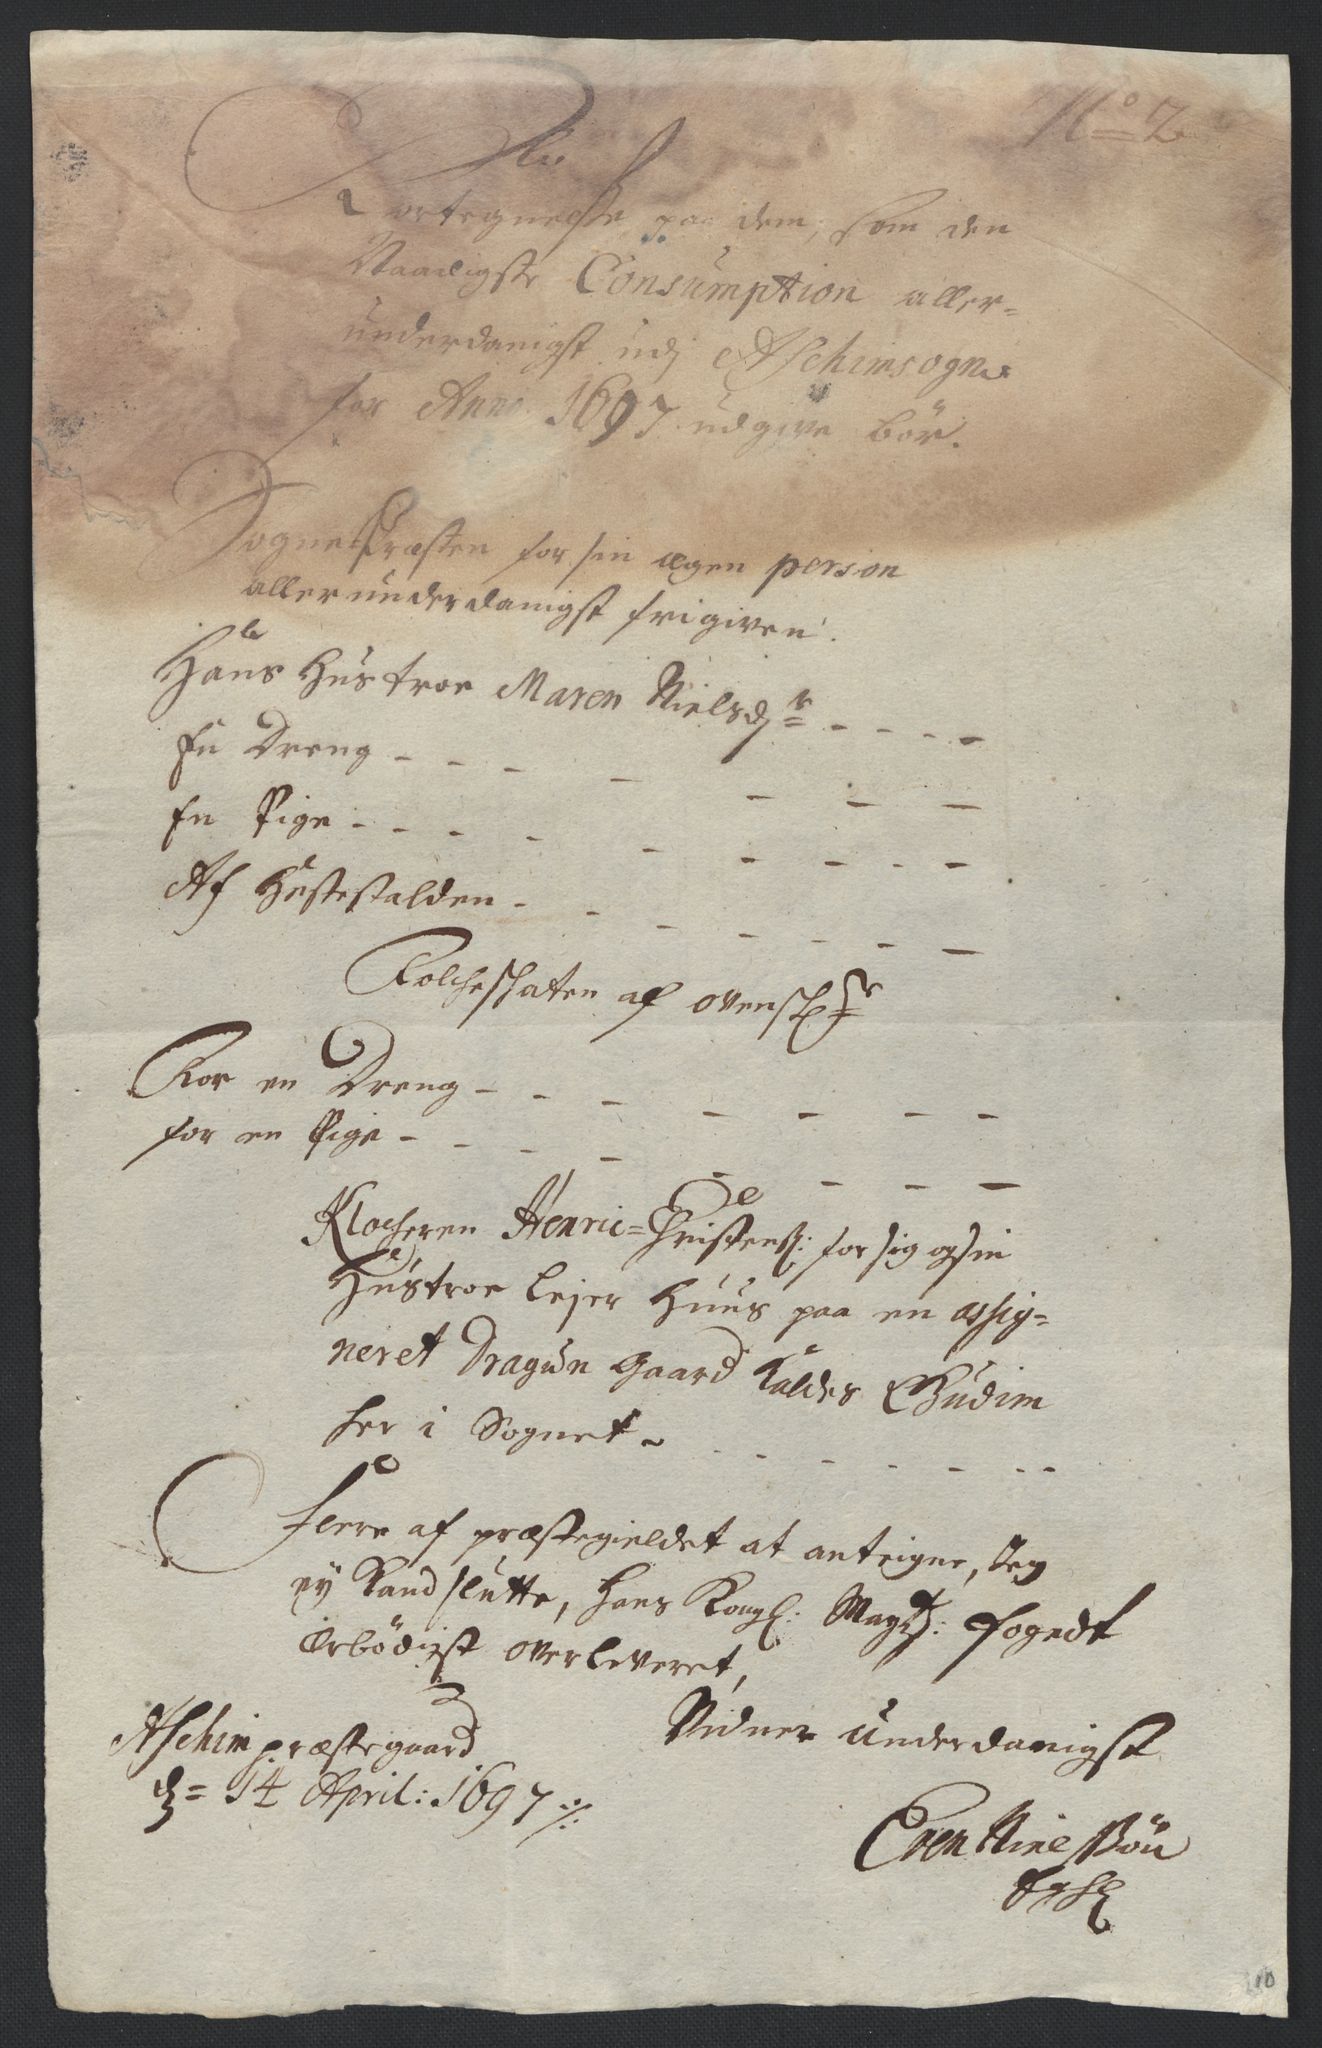 No 2
En
Fortegnelse paa dem, som den
Naadigste Consumption aller=
underdanigst udj Aschimsogne
for Anno 1697 udgive bör.
Sognepræsten for sin egen person
allerunderdanigst frigiven.
Hans Hustroe Maren Nielsdr - - - -
En Dreng - - - - - - -
En Pige - - - - - - - - -
Af Hestestalden - - - - - - -
Folcheskaten af ovenschr
For en Dreng - - - - - - -
for en Pige - - - - - - - -
Klocheren Henric=Christens: for sig og sin
Hustroe lejer Huus paa en assig=
neret Dragun Gaard kaldes Gudim
her i Sognet - - - - - - -
Flere af præstegieldet at anteigne, Jeg
ey kand slutte, hans Kongl: Maytz: fogedt
Ærbödigst overleveret,
Vidner underdanigst
Aschim præstegaard
d= 14 April: 1697 ./.
Even Nielssön